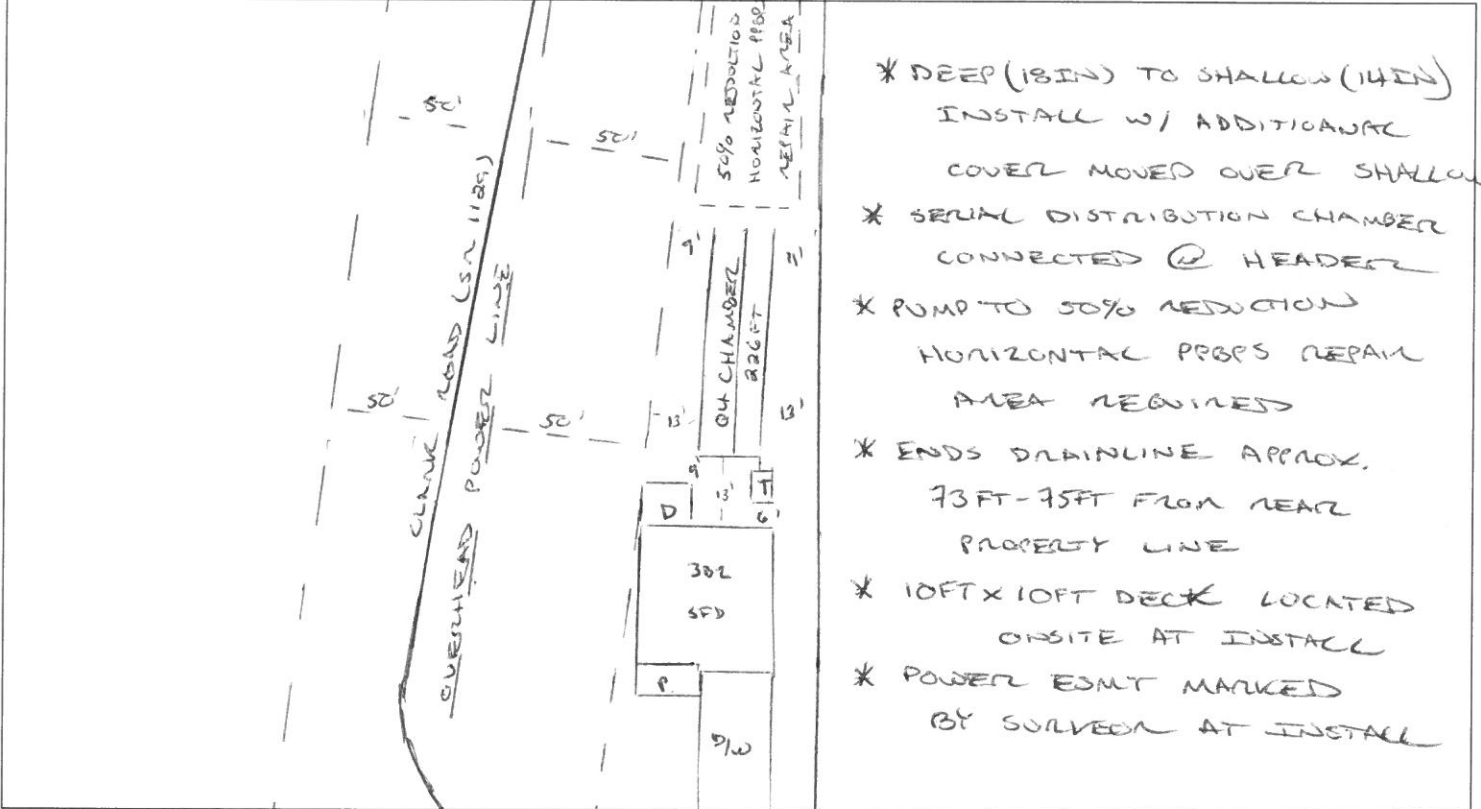 50'
50'
50% REDUCTION
HORIZONTAL PPBP
REPAIR AREA
CLARK ROAD (SR 1129)
OVERHEAD POWER LINE
9'
11'
Q4 CHAMBER
226FT
50'
50'
13'
13'
5'
13'
T
6'
D
3BR
SFD
P.
D/W
* DEEP (18IN) TO SHALLOW (14IN)
INSTALL W/ ADDITIOANAL
COVER MOVED OVER SHALLOW
* SERIAL DISTRIBUTION CHAMBER
CONNECTED @ HEADER
* PUMP TO 50% REDUCTION
HORIZONTAL PPBPS REPAIR
AREA REQUIRED
* ENDS DRAINLINE APPROX.
73FT-75FT FROM REAR
PROPERTY LINE
* 10FT X 10FT DECK LOCATED
ONSITE AT INSTALL
* POWER ESMT MARKED
BY SURVEOR AT INSTALL